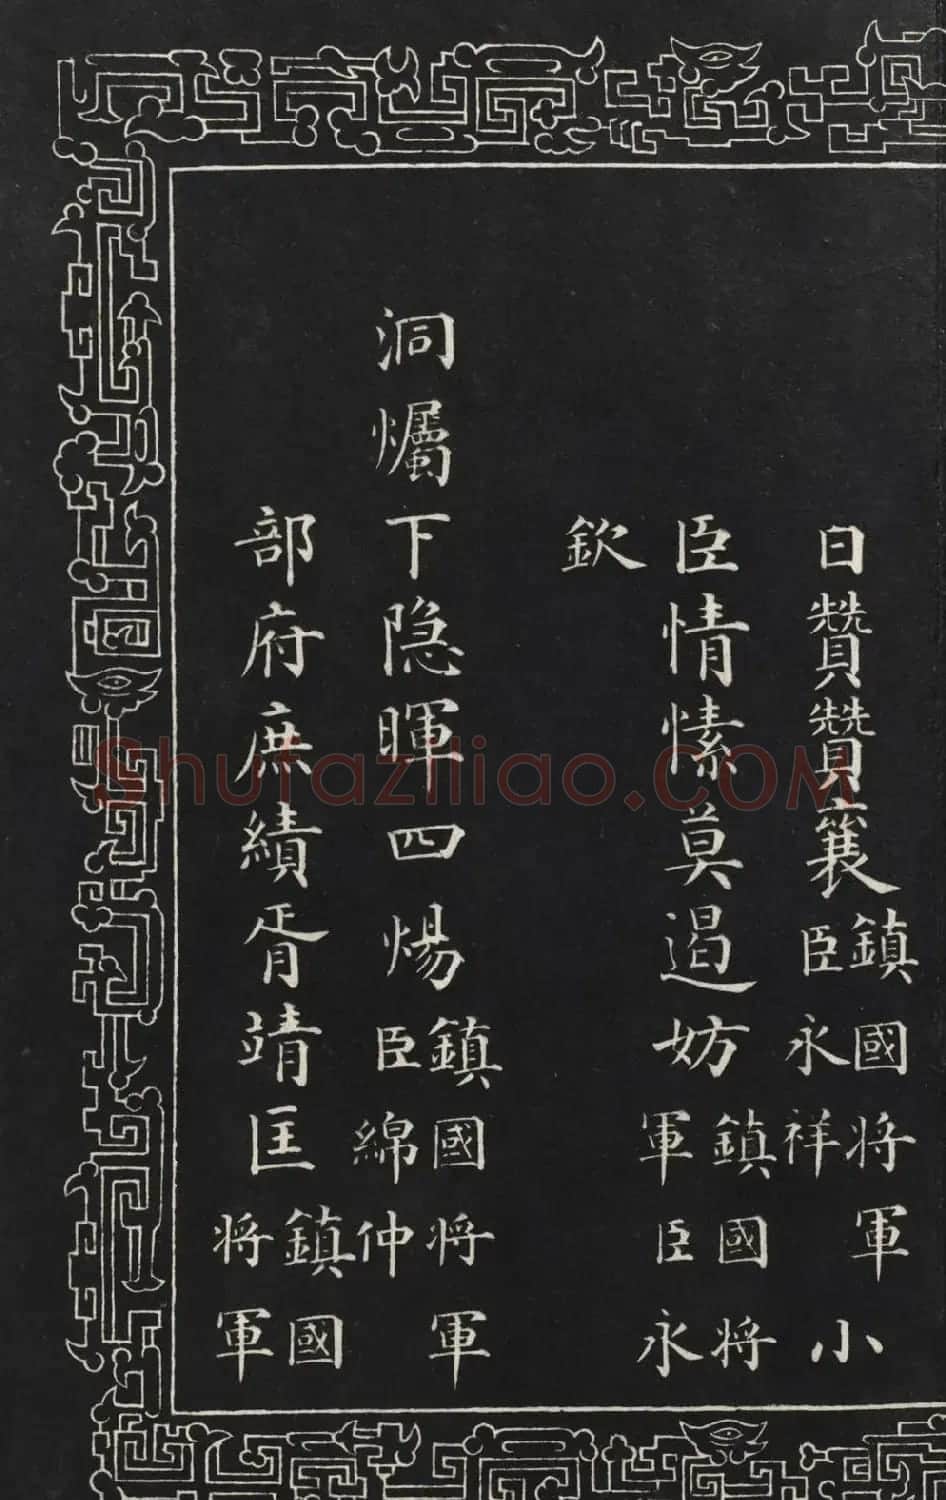 曰贊贊襄鎮國将軍臣永祥小
臣情愫莫遏妨鎮國将軍臣永
欽
洞爥下隐暉四煬鎮國将軍臣綿仲
部府庶績胥靖匡鎮國将軍
Shufaziliao.COM